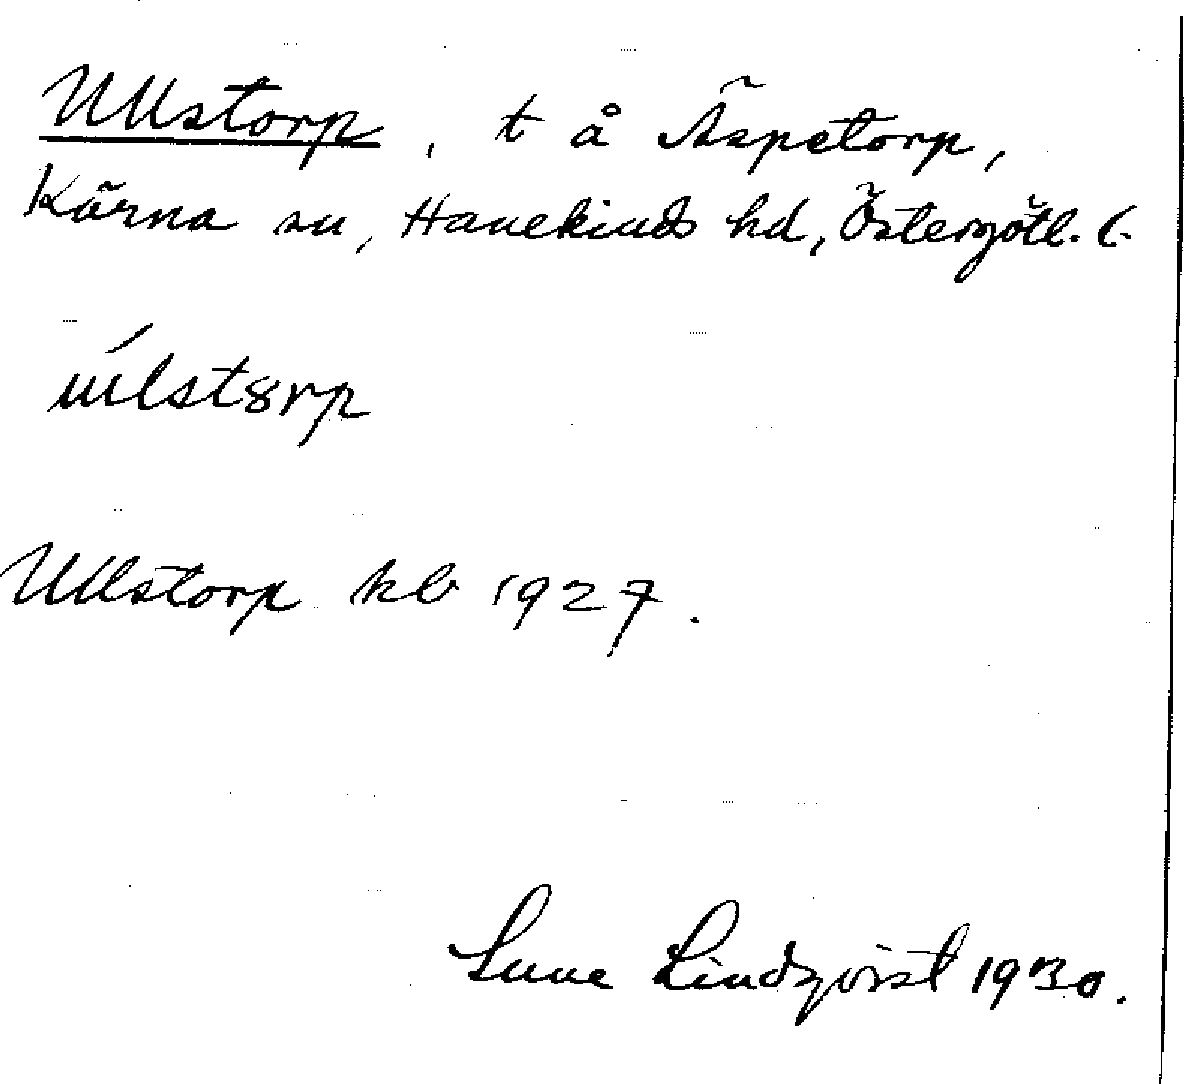 Ullstorp, t å Äspetorp,
Kärna sn, Hanekinds hd, Östergötl. l.
úlstørp
Ullstorp kb 1927.
Sune Lindqvist 1930.